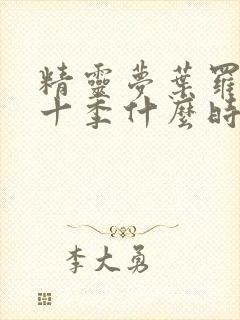 精靈夢葉羅
十季什麼時
李大勇